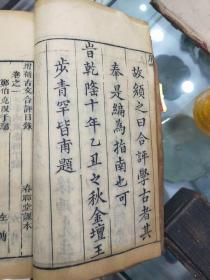 序
故顏之曰合評學古者其
奉是編為指南也可
旹乾隆十年乙丑之秋金壇王
步青罕皆甫題
增補古文合評目錄
卷之一
鄭伯克段于鄢
左傳
春聯堂課本